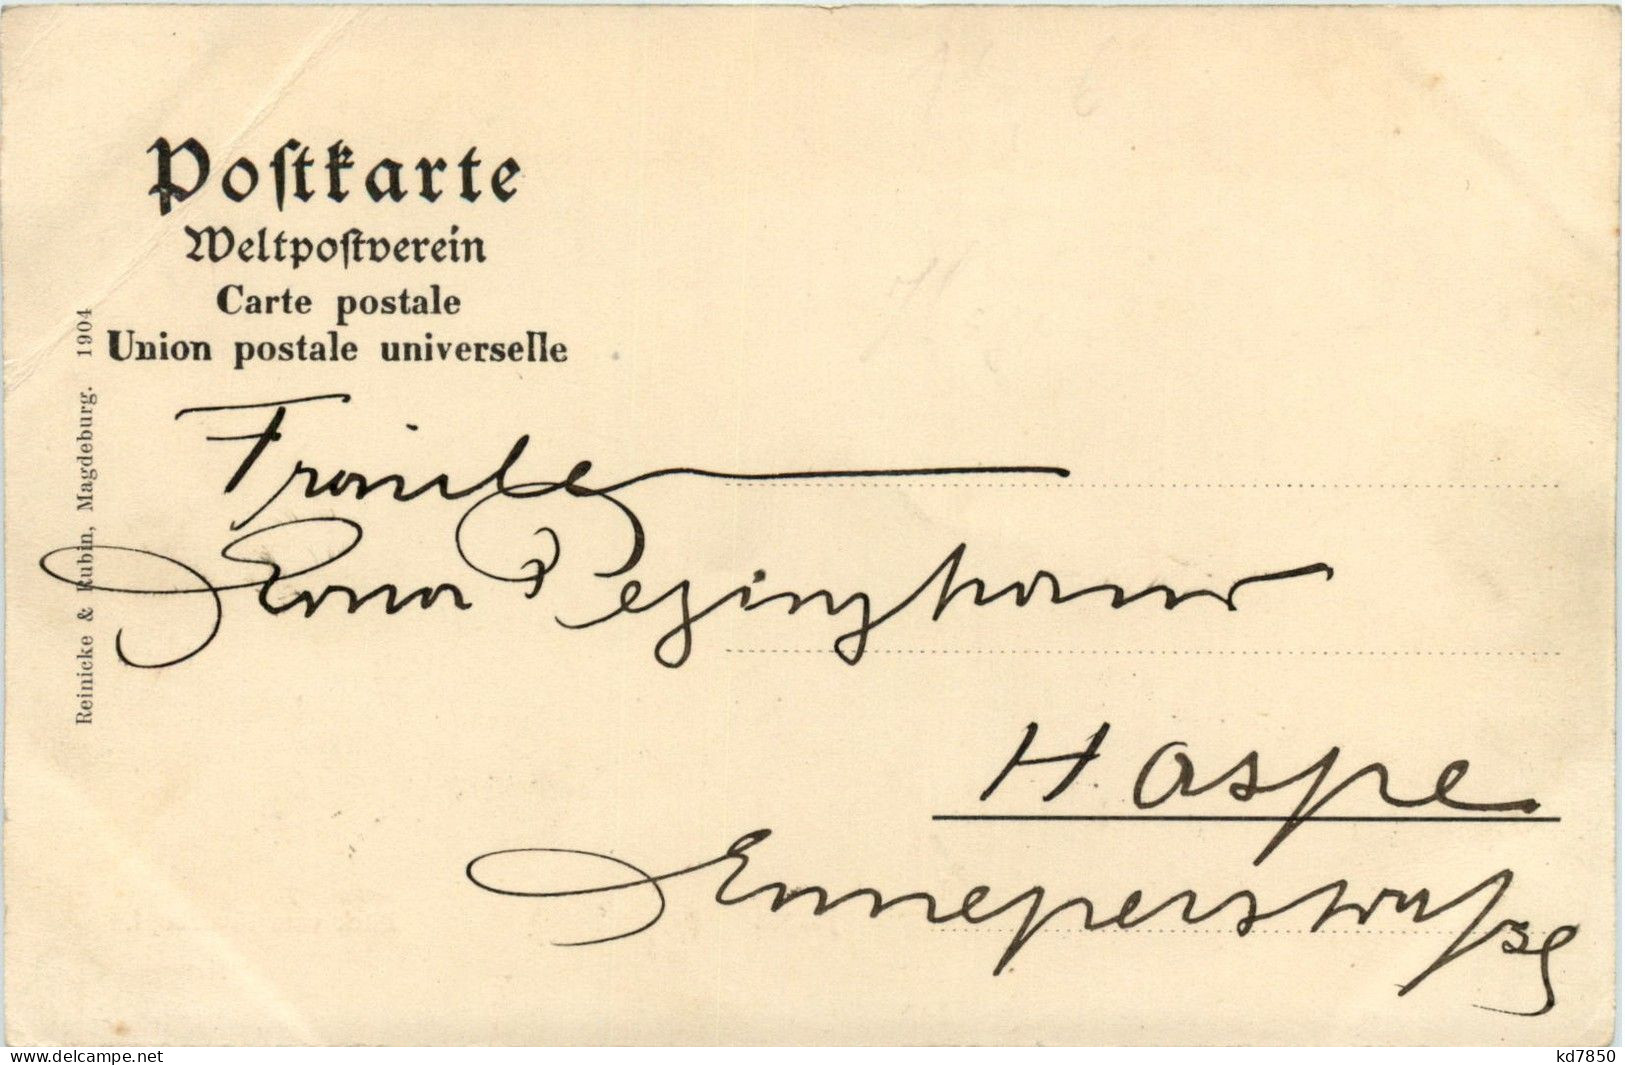 Postkarte
Weltpostverein
Carte postale
Union postale universelle
Reinicke & Rubin, Magdeburg. 1904
Haspe
Enneperstraße
www.delcampe.net
kd7850